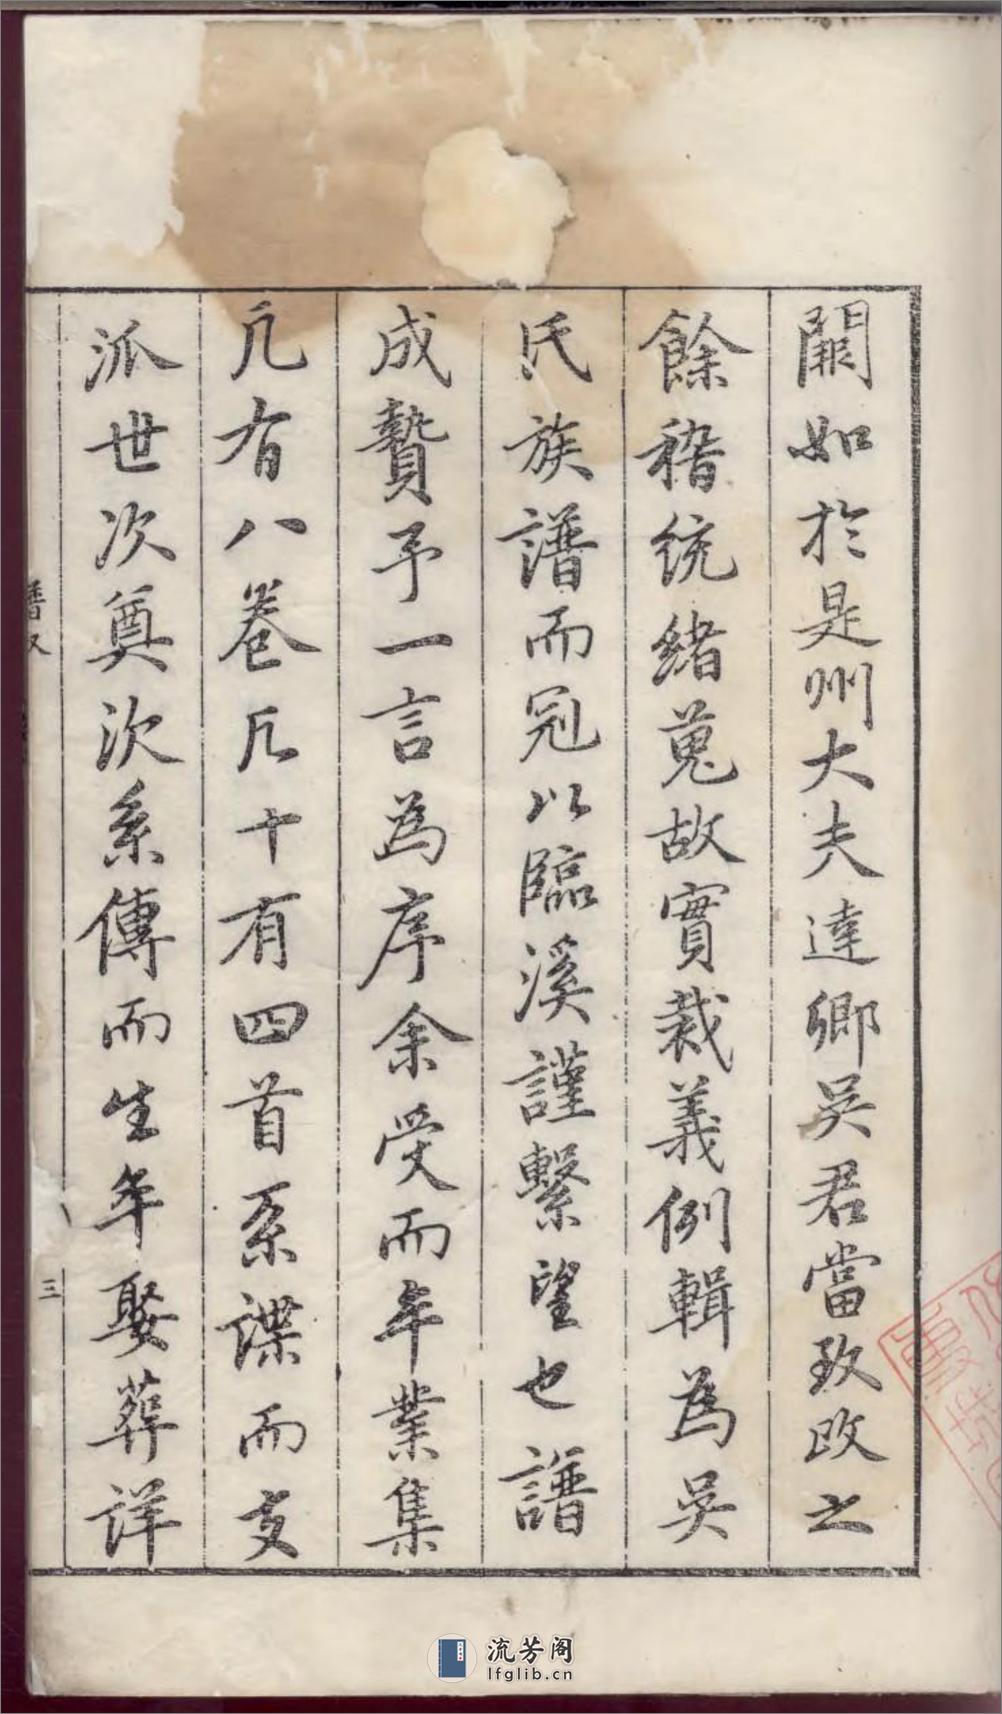 闕如於是州大夫達卿吳君當致政之
餘稽統緒蒐故實裁義例輯為吳
氏族譜而冠以臨溪謹繫望也譜
成贄予一言為序余受而年業集
凡有八卷凡十有四首系諜而支
派世次奠次系傳而生年娶葬詳
譜叙
三
流芳阁
lfglib.cn